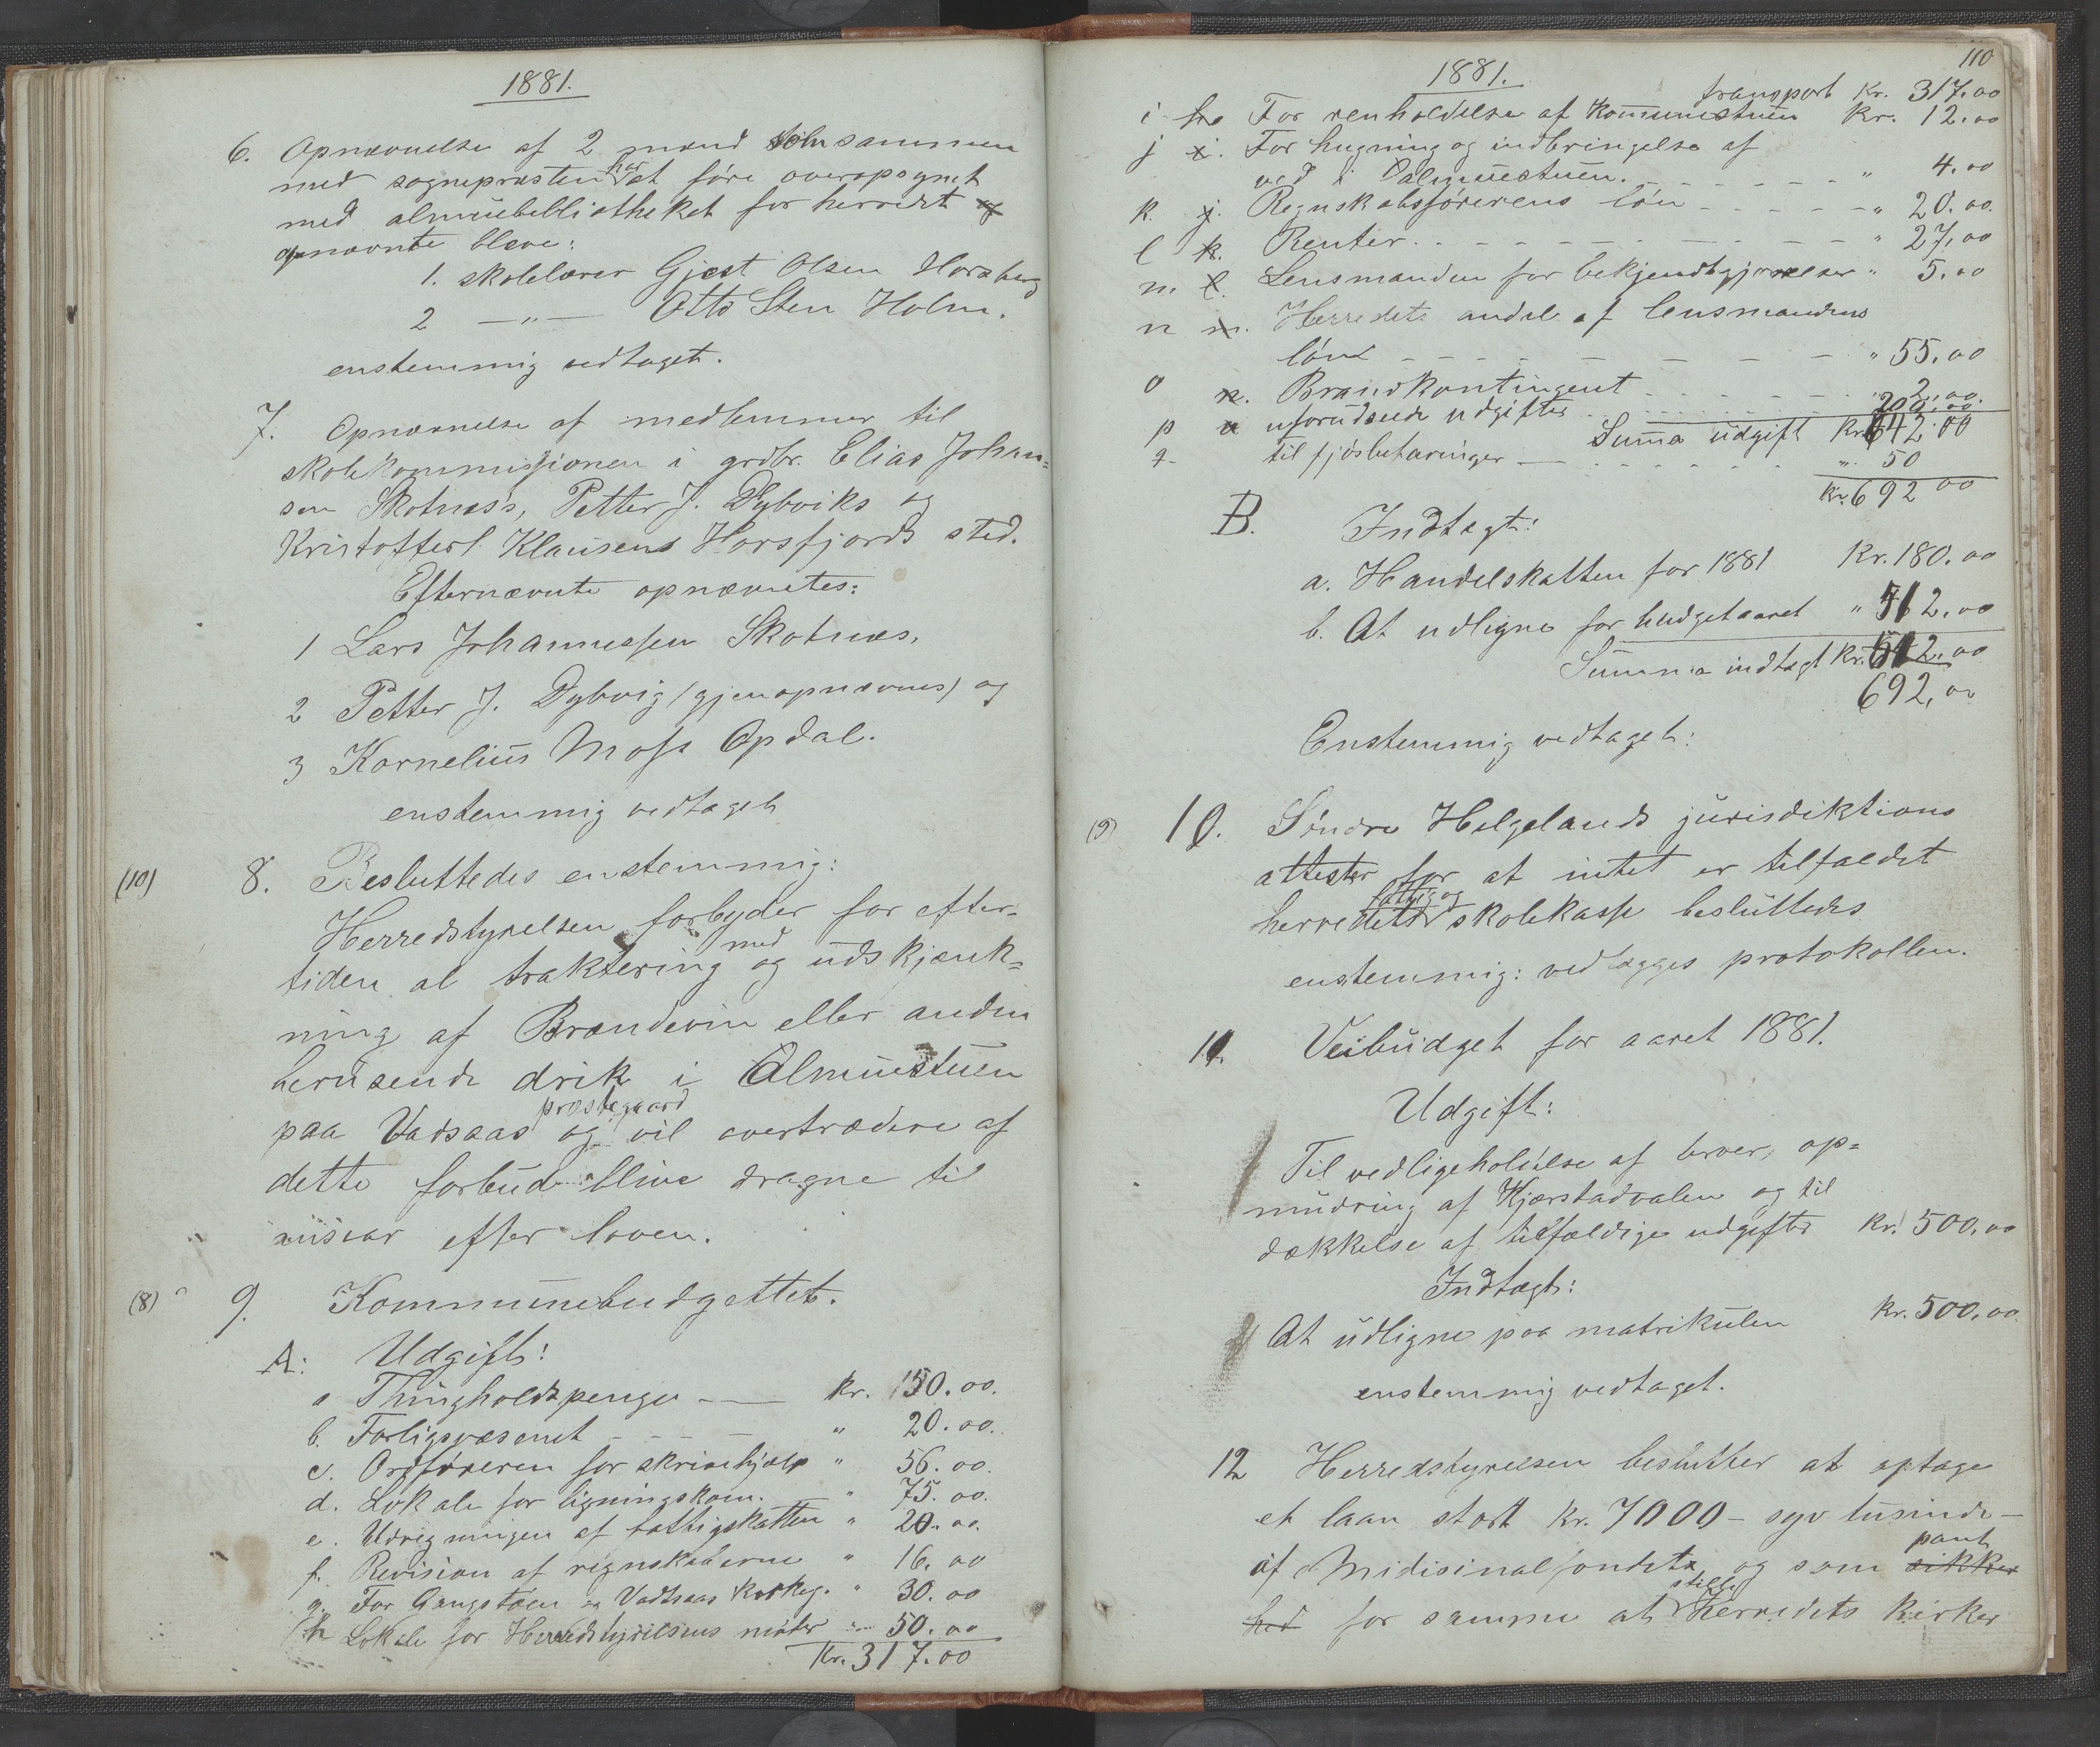 1881.
6. Opnævnelse af 2 mænd som sammen
med sognepræsten har at føre overopsynet
med almuebibliotheket for herredet og
opnævnte bleve:
1. skolelærer Gjest Olsen Horsberg
2 —"— Otto Sten Holm.
enstemmig vedtaget.
7. Opnævnelse af medlemmer til
skolekommissionen i grdbr. Elias Johan-
sen Skotnæs's, Petter J. Dybviks og
Kristoffer Klausens Horsfjords sted.
Efternævnte opnævntes:
1 Lars Johannessen Skotnæs,
2 Petter J. Dybvig (gjenopnævnes) og
3 Kornelius Moss Opdal.
enstemmig vedtaget
(10) 8. Besluttedes enstemmig:
Herredstyrelsen forbyder for efter-
tiden al traktering med og udskjænk-
ning af Brændevin eller anden
berusende drik i Almuestuen
paa Vadsaas præstegaard og vil overtrædere af
dette forbud blive dragne til
ansvar efter loven.
(8) 9. Kommunebudgettet.
A: Udgift:
a Thingholdspenge — kr. 150.00.
b. Forligsvæsenet - - - - " 20.00.
c. Ordføreren for skrivehjælp " 56.00.
d. Lokale for ligningskom. " 75.00.
e. Udregningen af fattigskatten " 20.00.
f. Revision af regnskaberne " 16.00
g. For Gangstøen og Vadsaas " 30.00
h Lokale for Herredstyrelsens møter " 50.00
Kr. 317.00
110
1881.
transport Kr. 317.00
i h For renholdelse af Komunestuen Kr. 12.00
j i. For hugning og indbringelse af
ved i Almuestuen. - - - - - " 4.00
k. j. Regnskabsførerens løn - - - - " 20.00.
l k. Renter. - - - - - - - " 27,00
m. l. Lensmanden for bekjendtgjørelser " 5.00
n m. Herredets andel af lensmandens
løn - - - - - - - " 55.00
o n. Brandkontingent - - - - - " 2.00.
p uforudseede udgifter - - - - 200.00
Summa udgift Kr. 642.00
q til fjøsbetaringer - - - - " 50
Kr. 692 00
B. Indtægt:
a. Handelskatten for 1881 Kr. 180.00
b. At udligne for budgetaaret " 512.00
Summa indtægt Kr. 642.00
692,00
Enstemmig vedtaget:
(9) 10. Søndre Helgelands jurisdiktions
attester for at intet er tilfaldet
herredets fattig og skolekasse besluttedes
enstemmig: vedlægges protokollen.
11. Veibudget for aaret 1881.
Udgift:
Til vedligeholdelse af broer, op-
mudring af Kjærstadvalen og til
dækkelse af tilfældige udgifter Kr. 500.00
Indtægt:
At udligne paa matrikulen kr. 500.00.
enstemmig vedtaget.
12 Herredstyrelsen beslutter at optage
et laan stort kr. 7000 - syv tusinde -
af Midisinalfondet og som sikker pant
hed for samme at stille herredets kirker